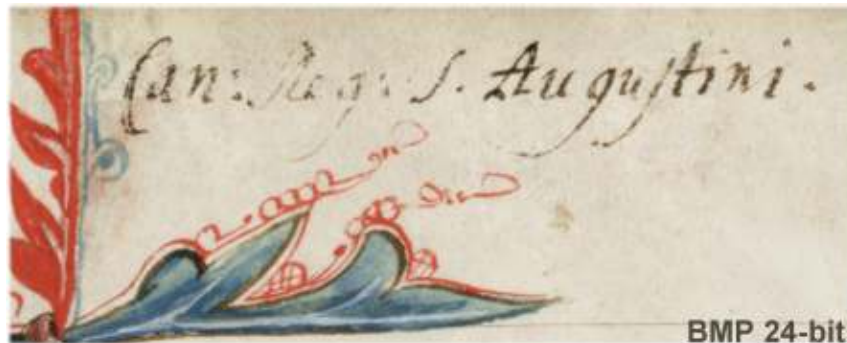 Can: Reg: S. Augustini.
BMP 24-bit